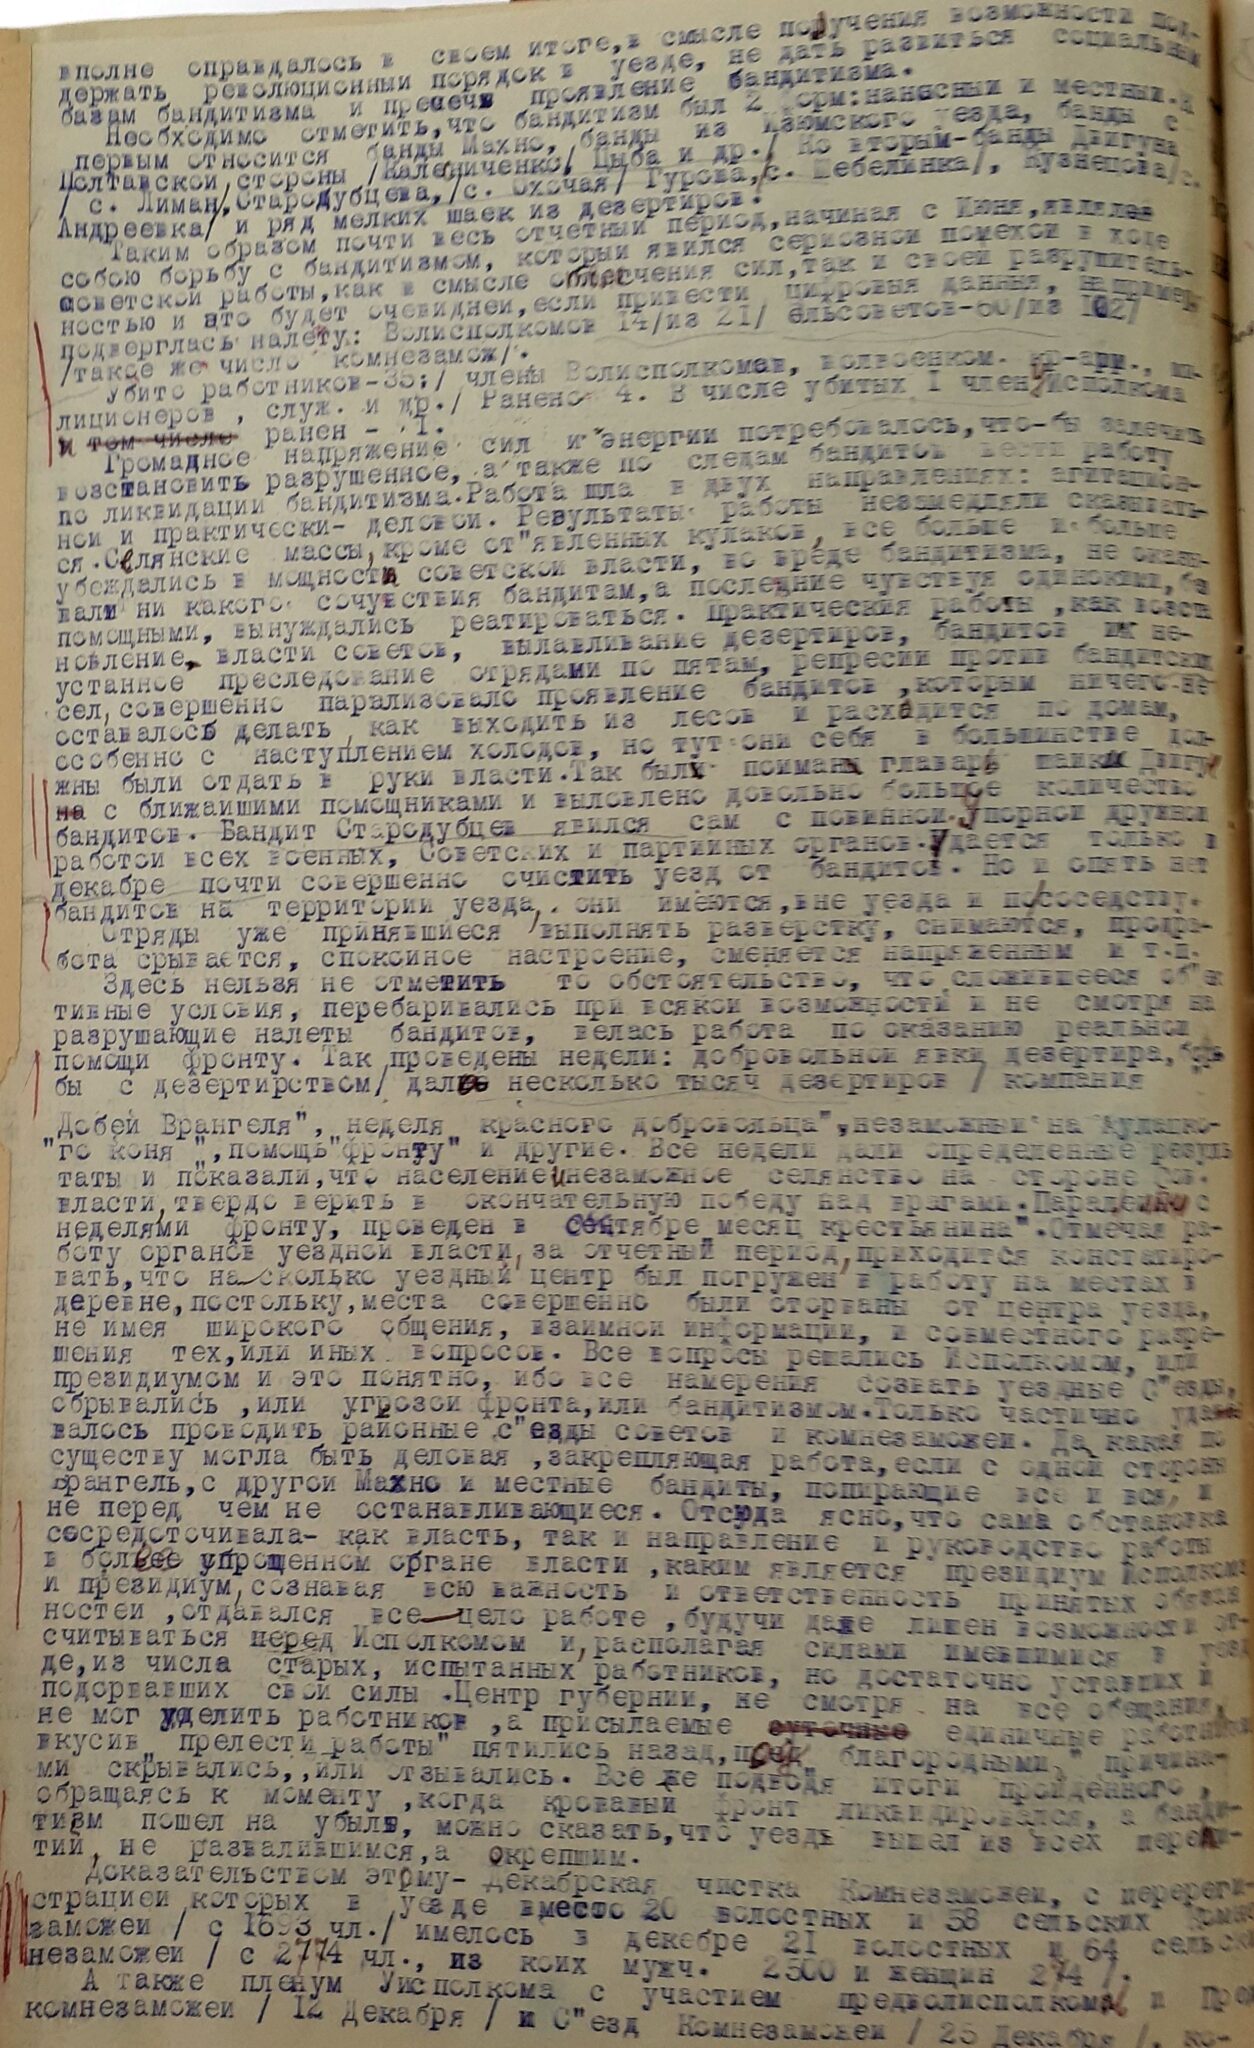 вполне оправдалось в своем итоге, в смысле получения возможности под-
держать революционный порядок в уезде, не дать развиться социальным
базам бандитизма и пресечь проявление бандитизма.
Необходимо отметить, что бандитизм был 2 форм: нанесный и местный. К
первым относится банды Махно, банды из Изюмского уезда, банды с
Полтавской стороны /Калениченко, Цыба и др./ Ко вторым-банды Двигуна
/ с. Лиман/, Стародубцева, /с. Охочая/ Гурова, /с. Шебелинка/, Кузнецова /с.
Андреевка/ и ряд мелких шаек из дезертиров.
Таким образом почти весь отчетный период, начиная с Июня, являлев
собою борьбу с бандитизмом, который явился сериозной помехой в ходе
советской работы, как в смысле отвлечения сил, так и своей разрушитель-
ностью и это будет очевидней, если привести цифровыя данныя, например
подверглась налету: Волисполкомов 14/из 21/ ельсоветов-60/из 102/
/такое же число комнезамож/.
Убито работников-35;/ члены Волисполкомав, волвоенком. кр-арм., ми-
лиционеров , служ. и др./ Ранено 4. В числе убитых 1 член Исполкома
и том числе ранен - 1.
Громадное напряжение сил и энергии потребовалось, что-бы залечить
возстановить разрушенное, а также по следам бандитов вести работу
по ликвидации бандитизма. Работа шла в двух направлениях: агитацион-
ной и практически- деловой. Результаты работы незамедляли сказывать-
ся. Селянские массы, кроме от"явленных кулаков, все больше и больше
убеждались в мощности советской власти, во вреде бандитизма, не оказы-
вали ни какого сочувствия бандитам, а последние чувствуя одинокими, без
помощными, вынуждались реатироваться. Практическия работы , как возста
новление, власти советов, вылавливание дезертиров, бандитов их не-
устанное преследование отрядами по пятам, репресии против бандитских
сел, совершенно парализовало проявление бандитов , которым ничего не
оставалось делать как выходить из лесов и расходится по домам,
особенно с наступлением холодов, но тут они себя в большинстве дол-
жны были отдать в руки власти. Так был пойман главарь шайки Двигу
на с ближайшими помощниками и выловлено довольно большое количество
бандитов. Бандит Стародубцев явился сам с повинной. Упорной дружной
работой всех военных, Советских и партийных органов. удается только в
декабре почти совершенно очистить уезд от бандитов. Но и опять нет
бандитов на территории уезда, они имеются, вне уезда и по соседству.
Отряды уже принявшиеся выполнять разверстку, снимаются, продра-
бота срывается, спокойное настроение, сменяется напряженным и т.п.
Здесь нельзя не отметить то обстоятельство, что сложившееся об"ек
тивные условия, перебаривались при всякой возможности и не смотря на
разрушающие налеты бандитов, велась работа по оказанию реальной
помощи фронту. Так проведены недели: добровольной явки дезертира, борь
бы с дезертирством/ дало несколько тысяч дезертиров / компания
"Добей Врангеля", неделя красного добровольца", незаможный на Кулацко-
"го коня ", помощь "фронту" и другие. Все недели дали определенные резуль
таты и показали, что население и незаможное селянство на стороне Сов.
власти, твердо верить в окончательную победу над врагами. Паралельно с
неделями фронту, проведен в сентябре месяц крестьянина". Отмечая ра-
боту органов уездной власти, за отчетный период, приходится констатиро-
вать, что на сколько уездный центр был погружен в работу на местах в
деревне, постольку, места совершенно были оторваны от центра уезда,
не имея широкого общения, взаимной информации, и совместного разре-
шения тех, или иных вопросов. Все вопросы решались Исполкомом, или
президиумом и это понятно, ибо все намерения созвать уездные С"езды,
обрывались , или угрозой фронта, или бандитизмом. Только частично уда
валось проводить районные с"езды советов и комнезаможей. Да, какая по
существу могла быть деловая , закрепляющая работа, если с одной стороны
Врангель, с другой Махно и местные бандиты, попирающие все и вся, и
не перед чем не останавливающиеся. Отсюда ясно, что сама обстановка
сосредоточивала- как власть, так и направление и руководство работы
в более упрощенном органе власти , каким является президиум Исполкома
и президиум, сознавая всю важность и ответственность принятых обязан
ностей , отдавался все цело работе , будучи даже лишен возможности от-
считываться перед Исполкомом и, располагая силами имевшимися в уез
де, из числа старых, испытанных работников, но достаточно уставших и
подорвавших свои силы . Центр губернии, не смотря на все обещания,
не мог уделить работников , а присылаемые единичные работники
вкусив "прелести работы" пятились назад, под "благородными" причина-
ми скрывались, , или отзывались. Все же подводя итоги пройденного ,
обращаясь к моменту , когда кровавый фронт ликвидировался, а банди-
тизм пошел на убыль, можно сказать, что уездъ вышел из всех перепи-
тий, не развалившимся, а окрепшим.
Доказательством этому- декабрская чистка Комнезаможей, с перереги-
страцией которых в уезде вместо 20 волостных и 58 сельских Комне
заможей / с 1693 чл./ имелось в декебре 21 волостных и 64 сельских
незаможей / с 2774 чл., из коих мужч. 2500 и женщин 274 /.
А также пленум Уисполкома с участием предволисполкома и Пред
комнезаможей / 12 Декабря / и С"езд Комнезаможей / 25 Декабря /, ко-